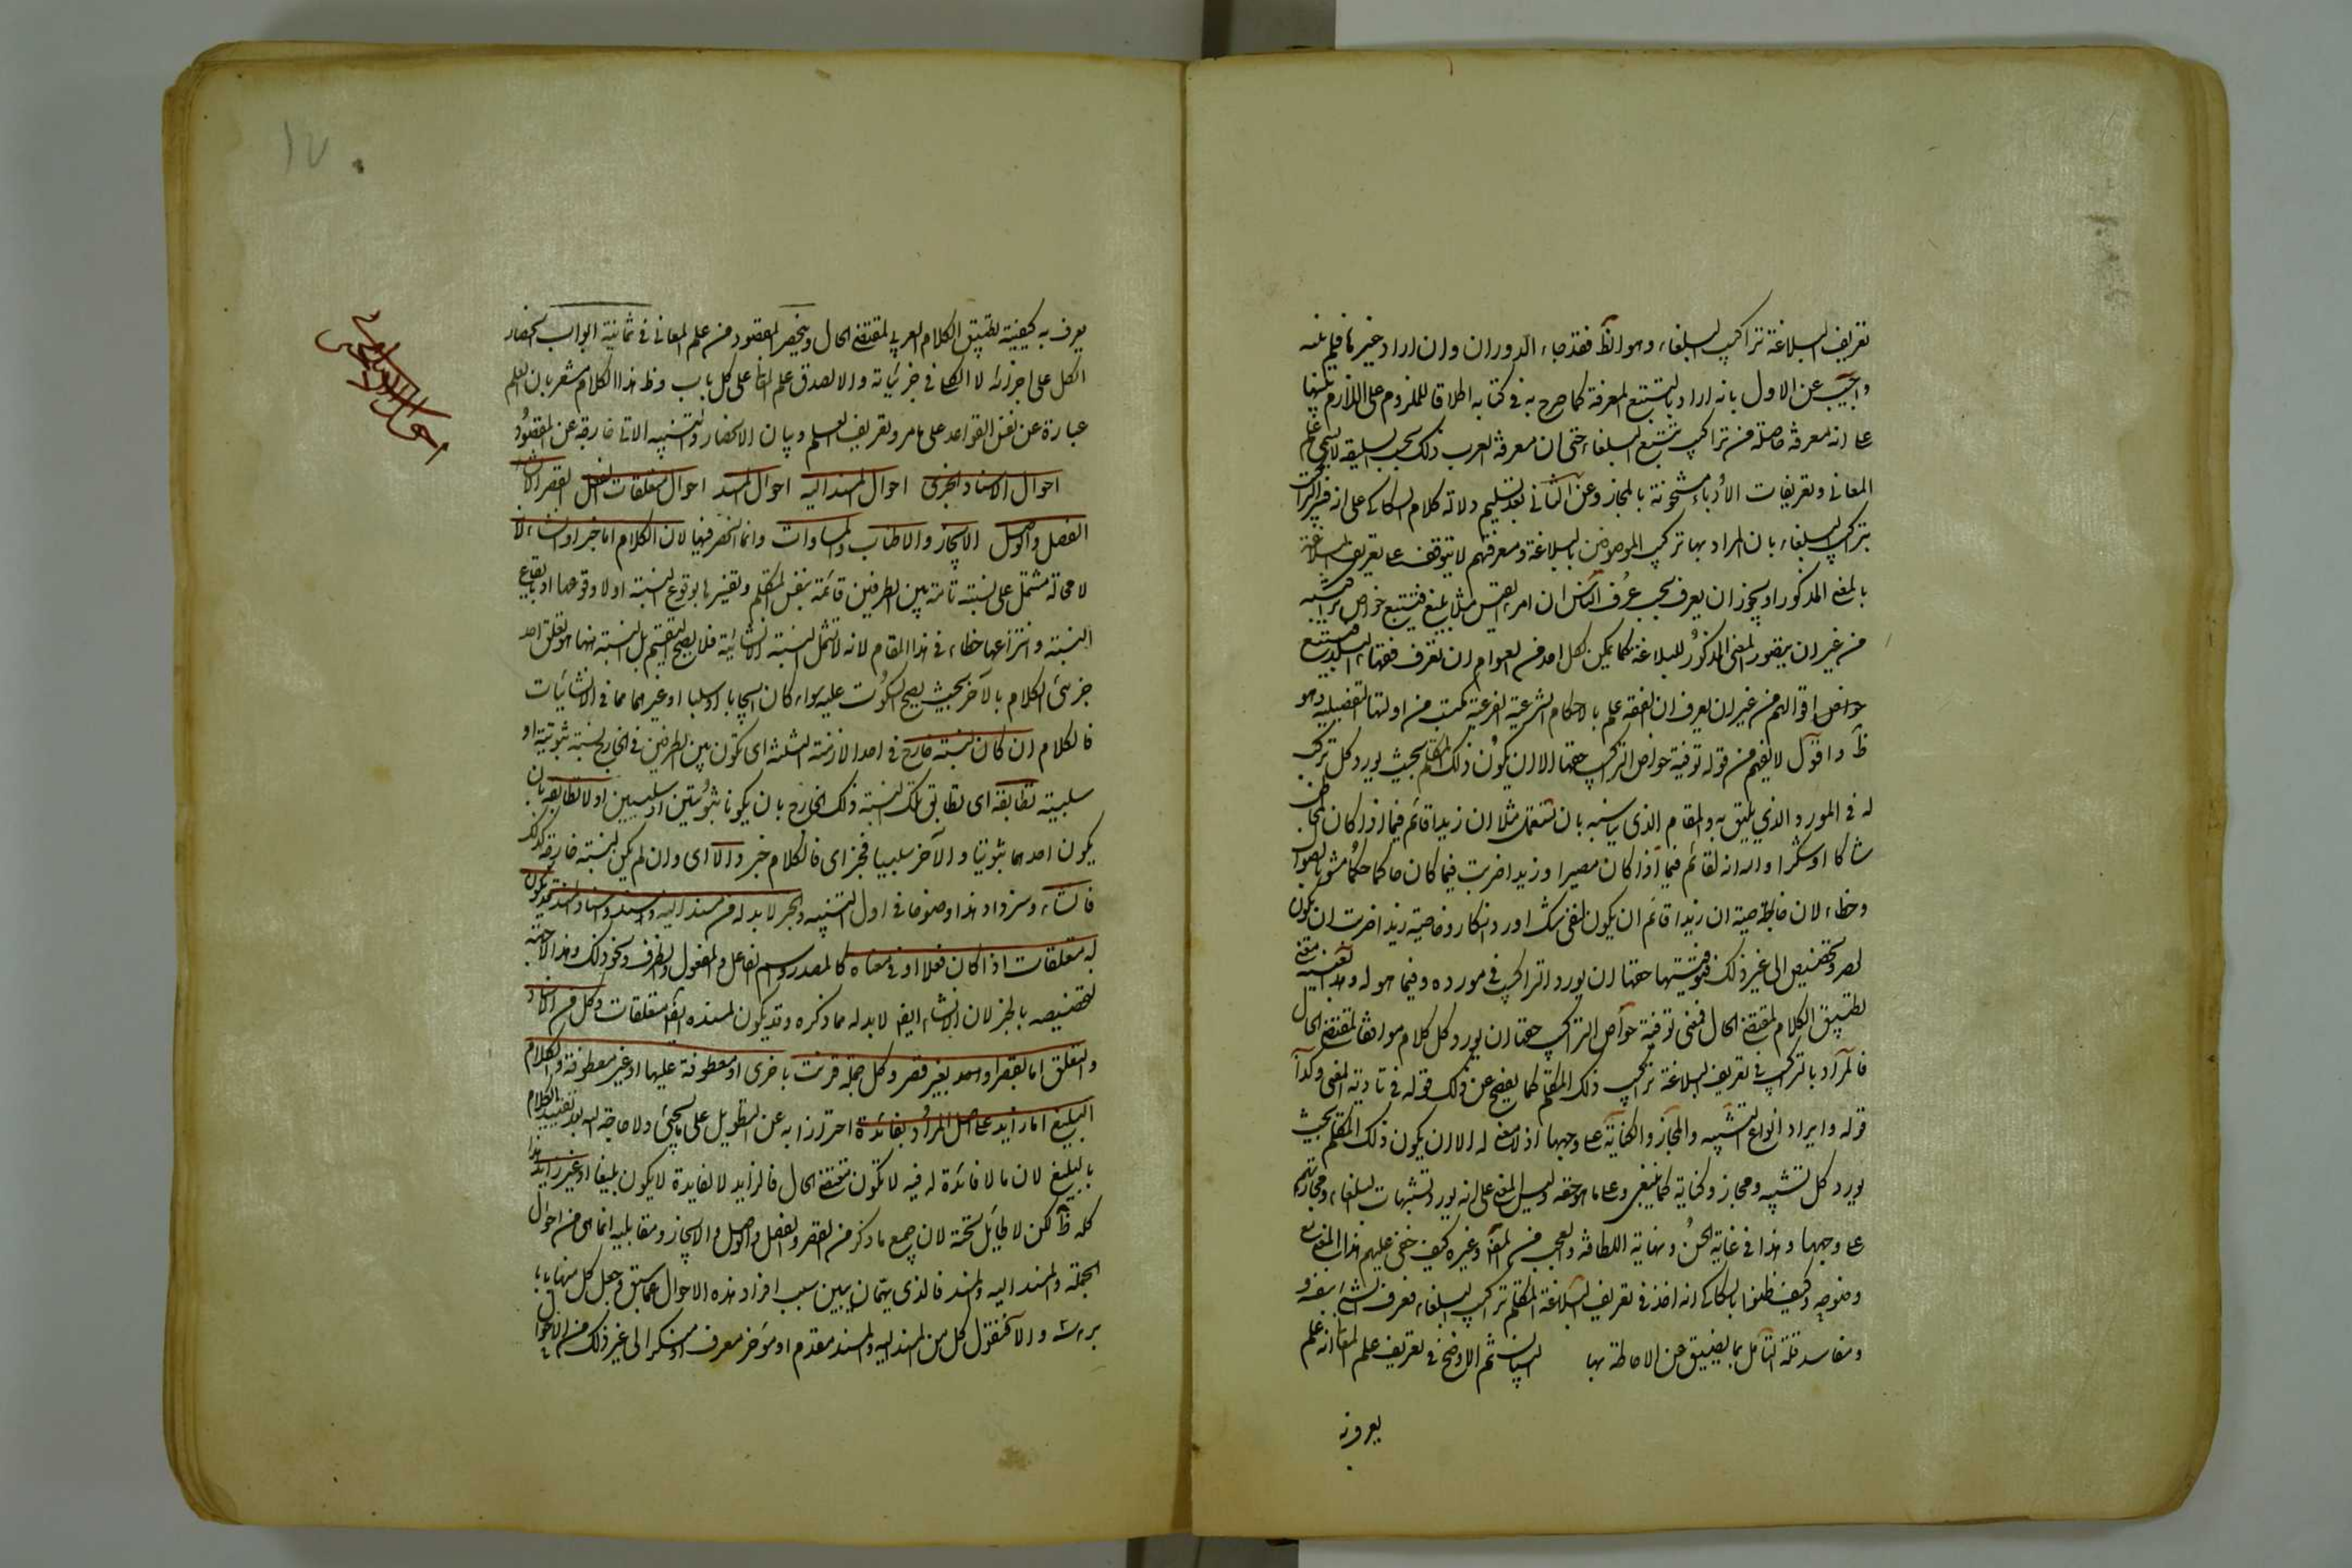 تعريف البلاغة تراكيب البلغاء وهو الظ فقد جاء الدوران وان اراد غيرها فلم يبينه
واجيب عن الاول بانه اراد بالتتبع المعرفة كما صرح به في كتابه اطلاقا للملزوم على اللازم تنبيها
على انه معرفة حاصلة من تراكيب تتبع البلغاء حتى ان معرفة العرب ذلك بحسب السليقة لا يسمى علم
المعاني وتعريفات الادباء مشحونة بالمجاز وعن الثاني بعد تسليم دلالة كلام السكاكي على انه فسر التراكيب
بتراكيب البلغاء بان المراد بها تراكيب الموصوفين بالبلاغة ومعرفتهم لا يتوقف على تعريف البلاغة
بالمعنى المذكور اذ يجوز ان يعرف بحسب عرف الناس ان امرء القيس مثلا بليغ فيتتبع خواص تراكيبه
من غير ان يتصور المعنى المذكور للبلاغة كما يمكن لكل احد من العوام ان يعرف فقهاء البلد فيتتبع
اقوالهم من غير ان يعرف ان الفقه علم بالاحكام الشرعية الفرعية مكتسب من ادلتها التفصيلية وهو
ظ واقول لا يفهم من قوله توفية خواص التراكيب حقها الا ان يكون ذلك المتكلم بحيث يورد كل تركيب
له في المورد الذي يليق به والمقام الذي يناسبه بان يستعمل مثلا ان زيدا قائم فيما اذا كان المخاطب
شاكا او منكرا والله انه لقائم فيما اذا كان مصرا وزيدا ضربت فيما كان حاكما حكما مشوبا بصواب
وخطاء لان خاصية ان زيدا قائم ان يكون لنفي شك او رد انكار وخاصية زيدا ضربت ان يكون
لحصر وتخصيص الى غير ذلك فتوفيتها حقها ان يورد التراكيب في مورده وفيما هو له وهذا بعينه معنى
تطبيق الكلام لمقتضى الحال فمعنى توفية خواص التراكيب حقها ان يورد كل كلام موافقا لمقتضى الحال
فالمراد بالتراكيب في تعريف البلاغة تراكيب ذلك المتكلم كما يفصح عن ذلك قوله في تادية المعنى وكذا
قوله وايراد انواع التشبيه والمجاز والكناية على وجهها اذ لا معنى له الا ان يكون ذلك المتكلم بحيث
يورد كل تشبيه ومجاز وكناية كما ينبغي وعلى ما هو حقه وليس المعنى على انه يورد تشبيهات البلغاء ومجازاتهم
على وجهها وهذا في غاية الحسن ونهاية اللطافة والعجب من المص وغيره كيف خفى عليهم هذا المعنى مع
وضوحه وكيف ظنوا بالسكاكي انه اخذ في تعريف البلاغة المتكلم تراكيب البلغاء فعرف الشئ بنفسه و
مفاسد قلة التامل مما يضيق عن الاحاطة بها البيان ثم الاوضح في تعريف علم المعاني انه علم
يعرف به
يعرف به كيفية تطبيق الكلام العربي لمقتضى الحال وينحصر المقصود من علم المعاني في ثمانية ابواب انحصار
الكل على اجزائه لا الكلي في جزئياته والا لصدق علم المعاني على كل باب وظ هذا الكلام مشعر بان العلم
عبارة عن نفس القواعد على ما مر وتعريف العلم وبيان الانحصار والتنبيه الاتي خارجة عن المقصود
احوال الاسناد الخبري احوال المسند اليه احوال المسند احوال متعلقات الفعل القصر الانشاء
الفصل والوصل الايجاز والاطناب والمساوات وانما انحصر فيها لان الكلام اما خبر او انشاء لانه
لا محالة مشتمل على نسبة تامة بين الطرفين قائمة بنفس المتكلم وتفسيرها بوقوع النسبة او لا وقوعها او بايقاع
النسبة وانتزاعها خطاء في هذا المقام لانه لا تشمل النسبة الانشائية فلا يصح التقسيم بل النسبة ههنا هو تعلق احد
جزئي الكلام بالآخر بحيث يصح السكوت عليه سواء كان ايجابا او سلبا او غيرهما مما في الانشائيات
فالكلام ان كان لنسبته خارج في احد الازمنة الثلثة اى تكون بين الطرفين في الخارج نسبة ثبوتية او
سلبية تطابقه اى تطابق تلك النسبة ذلك الخارج بان يكونا ثبوتيتين او سلبيتين او لا تطابقه بان
يكون احدهما ثبوتيا والآخر سلبيا فخبر اى فالكلام خبر والا اى وان لم يكن لنسبته خارج كذلك
فانشاء وسنزداد هذا وضوحا في اول التنبيه والخبر لا بد له من مسند اليه ومسند واسناد والمسند قد يكون
له متعلقات اذا كان فعلا او في معناه كالمصدر واسم الفاعل والمفعول والظرف ونحو ذلك وهذا لا جهة
لتخصيصه بالخبر لان الانشاء ايضا لا بد له مما ذكره وقد يكون لمسنده ايضا متعلقات وكل من الاسناد
والتعلق اما بقصر او بغير قصر وكل جملة قرنت باخرى اما معطوفة عليها او غير معطوفة والكلام
البليغ اما زايد على اصل المراد لفائدة احترز به عن التطويل على ما يجئ ولا حاجة اليه بعد تقييد الكلام
بالبليغ لان ما لا فائدة له فيه لا تكون مقتضى الحال فالزايد لا لفايدة لا يكون بليغا او غير زايد هذا
كله ظ لكن لا طائل تحته لان جميع ما ذكر من القصر والفصل والوصل والايجاز ومقابليه انما هى من احوال
الجملة والمسند اليه والمسند فالذي يهمه ان يبين سبب افراد هذه الاحوال عما سبق وجعل كل منها بابا
براسه والا فنقول كل من المسند اليه والمسند مقدم او مؤخر معرف او منكر الى غير ذلك من الاحوال